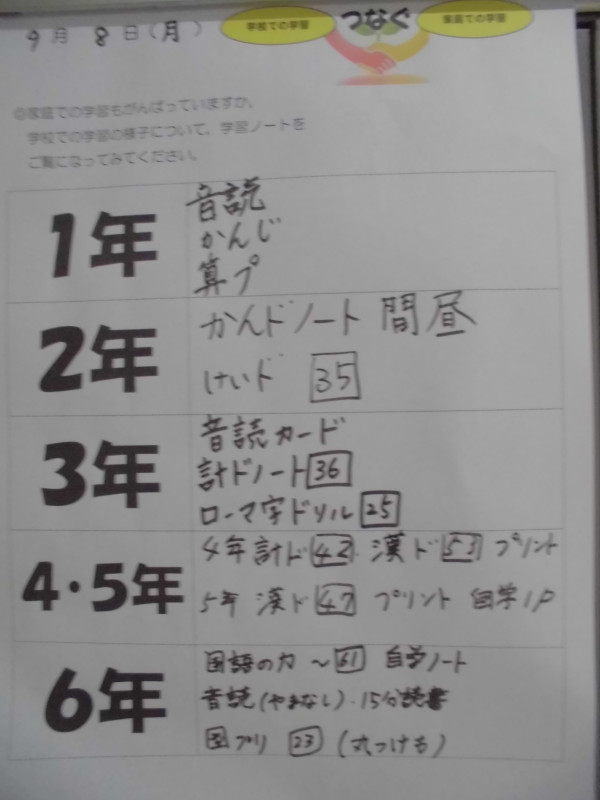 9月8日(月)
学校での学習 つなぐ 家庭での学習
◎家庭での学習もがんばっていますか。
学校での学習の様子について、学習ノートを
ご覧になってみてください。
1年
音読
かんじ
算プ
2年
かんドノート 間昼
けいド 35
3年
音読カード
計ドノート36
ローマ字ドリル25
4・5年
4年計ド42. 漢ド53 プリント
5年 漢ド47 プリント 自学1P
6年
国語の力 〜61 自学ノート
音読(やまなし)・15分読書
プリ 23 (丸つけも)